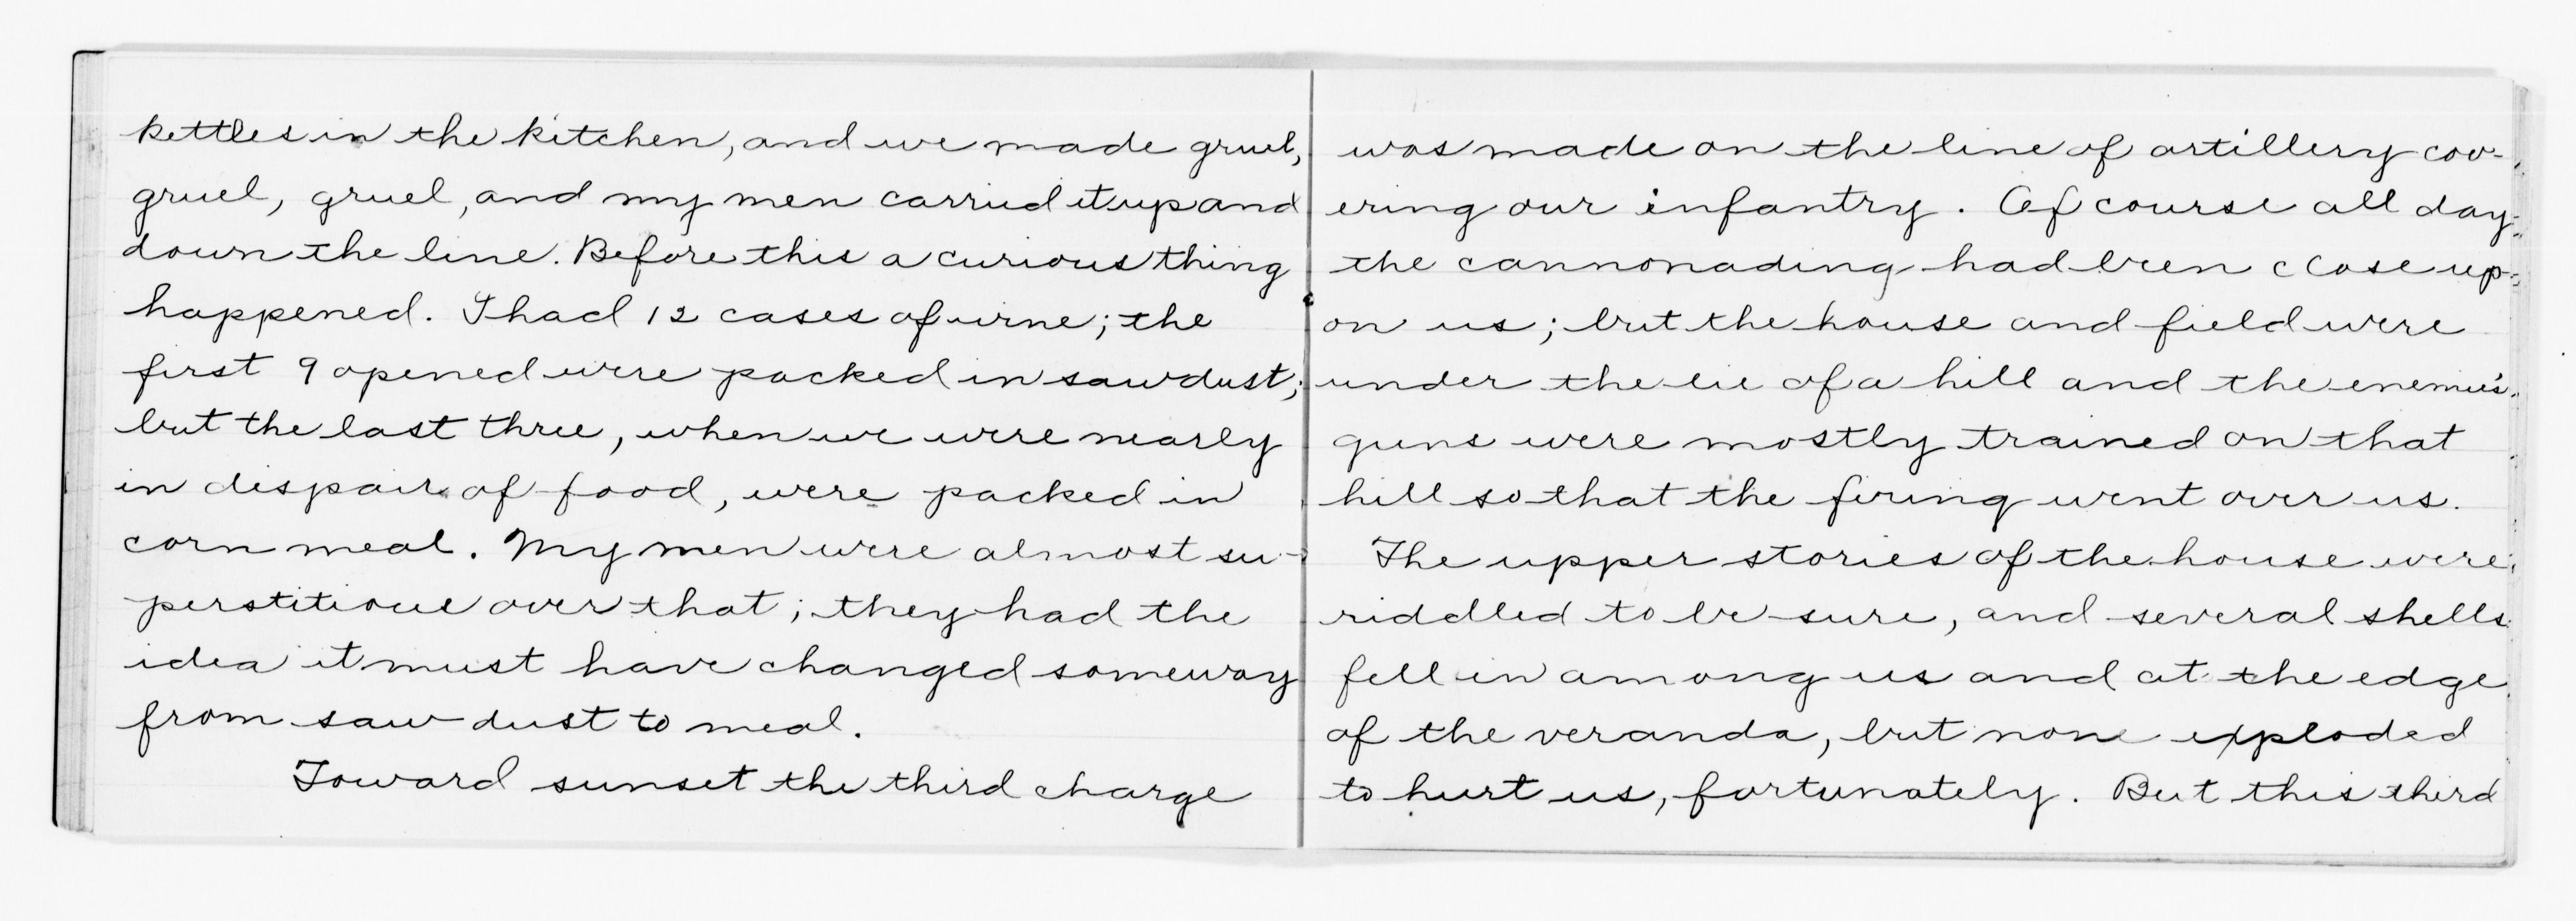 kettles in the kitchen, and we made gruel,
gruel, gruel, and my men carried it up and
down the line. Before this a curious thing
happened. I had 12 cases of wine; the
first 9 opened were packed in sawdust;
but the last three, when we were nearly
in dispair of food, were packed in
corn meal. My men were almost su-
perstitious over that; they had the
idea it must have changed someway
from saw dust to meal.
Toward sunset the third charge
was made on the line of artillery cov-
ering our infantry. Of course all day
the cannonading had been close up-
on us; but the house and field were
under the lie of a hill and the enemie's
guns were mostly trained on that
hill so that the firing went over us.
The upper stories of the house were
riddled to be sure, and several shells
fell in among us and at the edge
of the veranda, but none exploded
to hurt us, fortunately. But this third